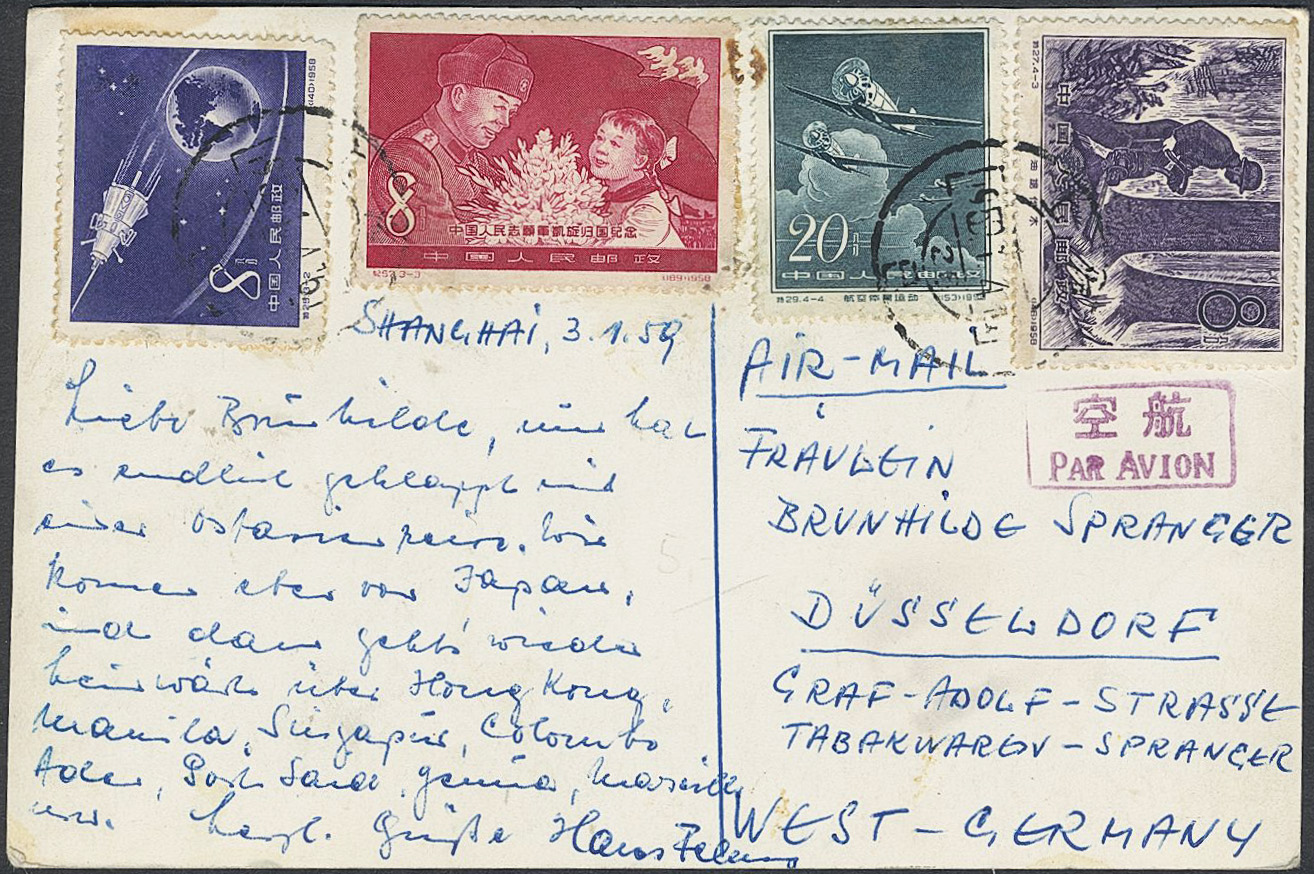 (140)1958
中国人民邮政
8分
特29.3-2
8分
中国人民志願軍凱旋归国紀念
中国人民邮政
紀53.3-3
(169)1958
20分
中国人民邮政
特29.4-4 航空体育运动 (153)1958
特27.4-3
中国人民邮政
8分
1958
SHANGHAI, 3.1.59
Liebe Brünhilde, nun hat
es endlich geklappt mit
einer Ostasienreise. Wir
kommen eben von Japan,
und dann geht's wieder
heimwärts über Hong Kong,
Manila, Singapur, Colombo
Aden, Port Said, Genua, Marseille
usw. Herzl. Grüße Hans
AIR-MAIL
FRÄULEIN
BRUNHILDE SPRANGER
DÜSSELDORF
GRAF-ADOLF-STRASSE
TABAKWAREN-SPRANGER
WEST-GERMANY
空航
PAR AVION